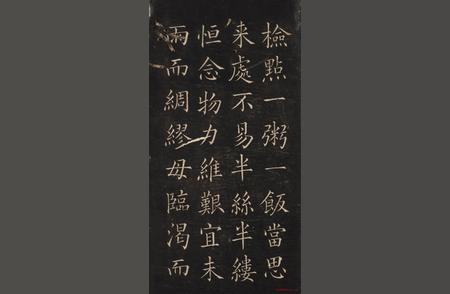 檢點一粥一飯當思
来處不易半絲半縷
恒念物力維艱宜未
雨而綢繆毋臨渴而